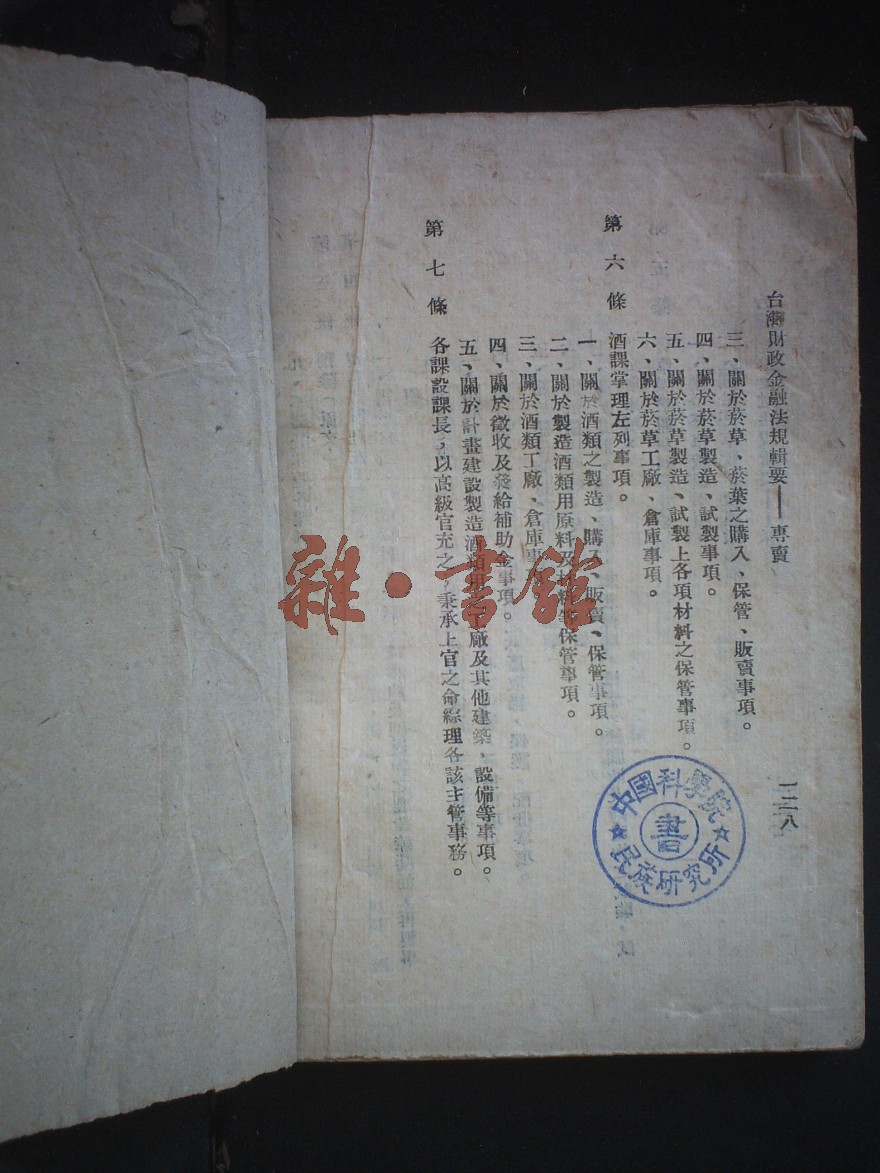 台灣財政金融法規輯要——專賣
一二八
三、關於菸草、菸葉之購入、保管、販賣事項。
四、關於菸草製造、試製事項。
五、關於菸草製造、試製上各項材料之保管事項。
六、關於菸草工廠、倉庫事項。
第六條 酒課掌理左列事項。
一、關於酒類之製造、購入、販賣、保管事項。
二、關於製造酒類用原料及材料等保管事項。
三、關於酒類工廠、倉庫事項。
四、關於徵收及發給補助金事項。
五、關於計畫建設製造酒類用工廠及其他建築，設備等事項。
第七條 各課設課長，以高級官充之，秉承上官之命綜理各該主管事務。
中國科學院
書
民族研究所
雜·書館